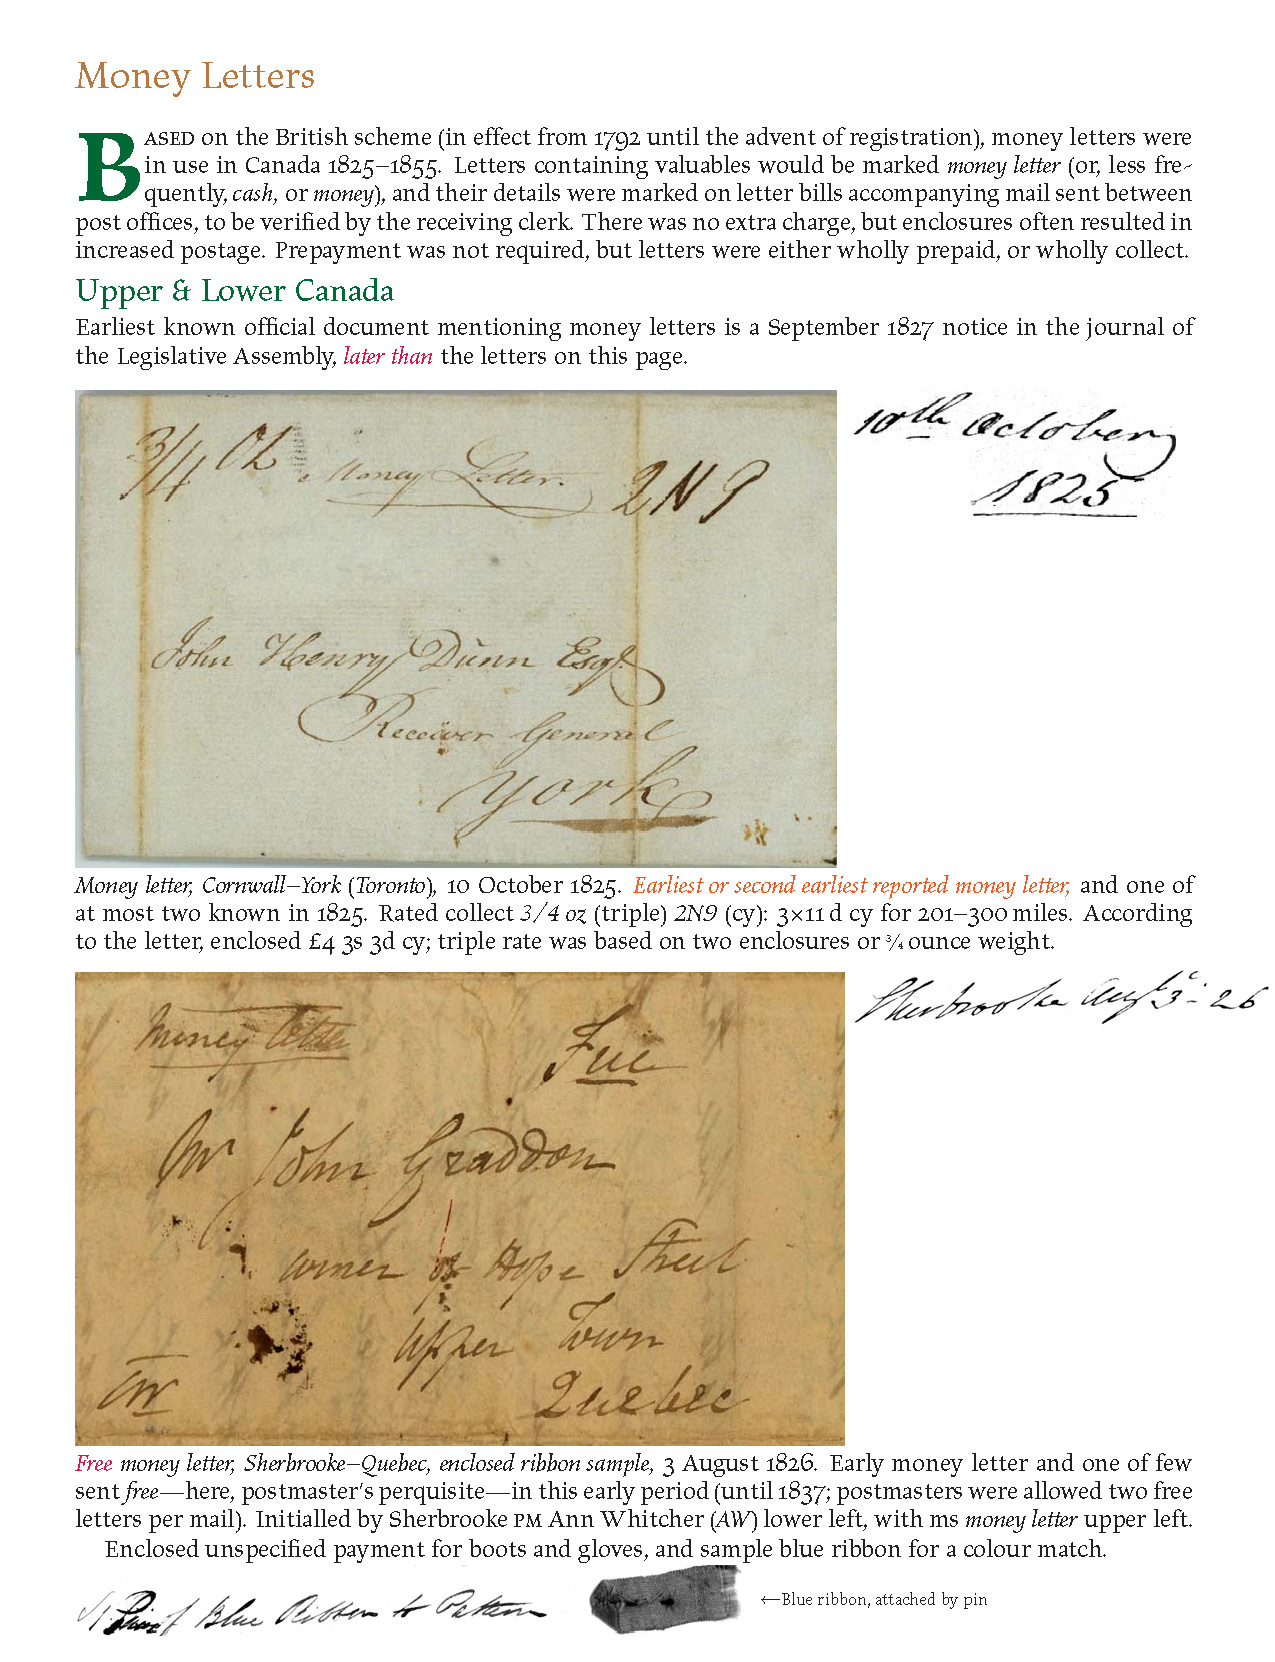 Money Letters
BASED on the British scheme (in effect from 1792 until the advent of registration), money letters were
in use in Canada 1825–1855. Letters containing valuables would be marked money letter (or, less fre-
quently, cash, or money), and their details were marked on letter bills accompanying mail sent between
post offices, to be verified by the receiving clerk. There was no extra charge, but enclosures often resulted in
increased postage. Prepayment was not required, but letters were either wholly prepaid, or wholly collect.
Upper & Lower Canada
Earliest known official document mentioning money letters is a September 1827 notice in the journal of
the Legislative Assembly, later than the letters on this page.
3/4 Oz Money Letter. 2N9
John Henry Dunn Esqr.
Receiver General
York
10th October
1825
Money letter, Cornwall–York (Toronto), 10 October 1825. Earliest or second earliest reported money letter, and one of
at most two known in 1825. Rated collect 3/4 oz (triple) 2N9 (cy): 3×11 d cy for 201–300 miles. According
to the letter, enclosed £4 3s 3d cy; triple rate was based on two enclosures or ¾ ounce weight.
Money letter
Free
Mr John Graddon
corner of Hope Street
Upper Town
Quebec
AW
Sherbrooke Augt 3d - 26
Free money letter, Sherbrooke–Quebec, enclosed ribbon sample, 3 August 1826. Early money letter and one of few
sent free—here, postmaster's perquisite—in this early period (until 1837; postmasters were allowed two free
letters per mail). Initialled by Sherbrooke PM Ann Whitcher (AW) lower left, with ms money letter upper left.
Enclosed unspecified payment for boots and gloves, and sample blue ribbon for a colour match.
Blue Ribbon to Pattern
←Blue ribbon, attached by pin